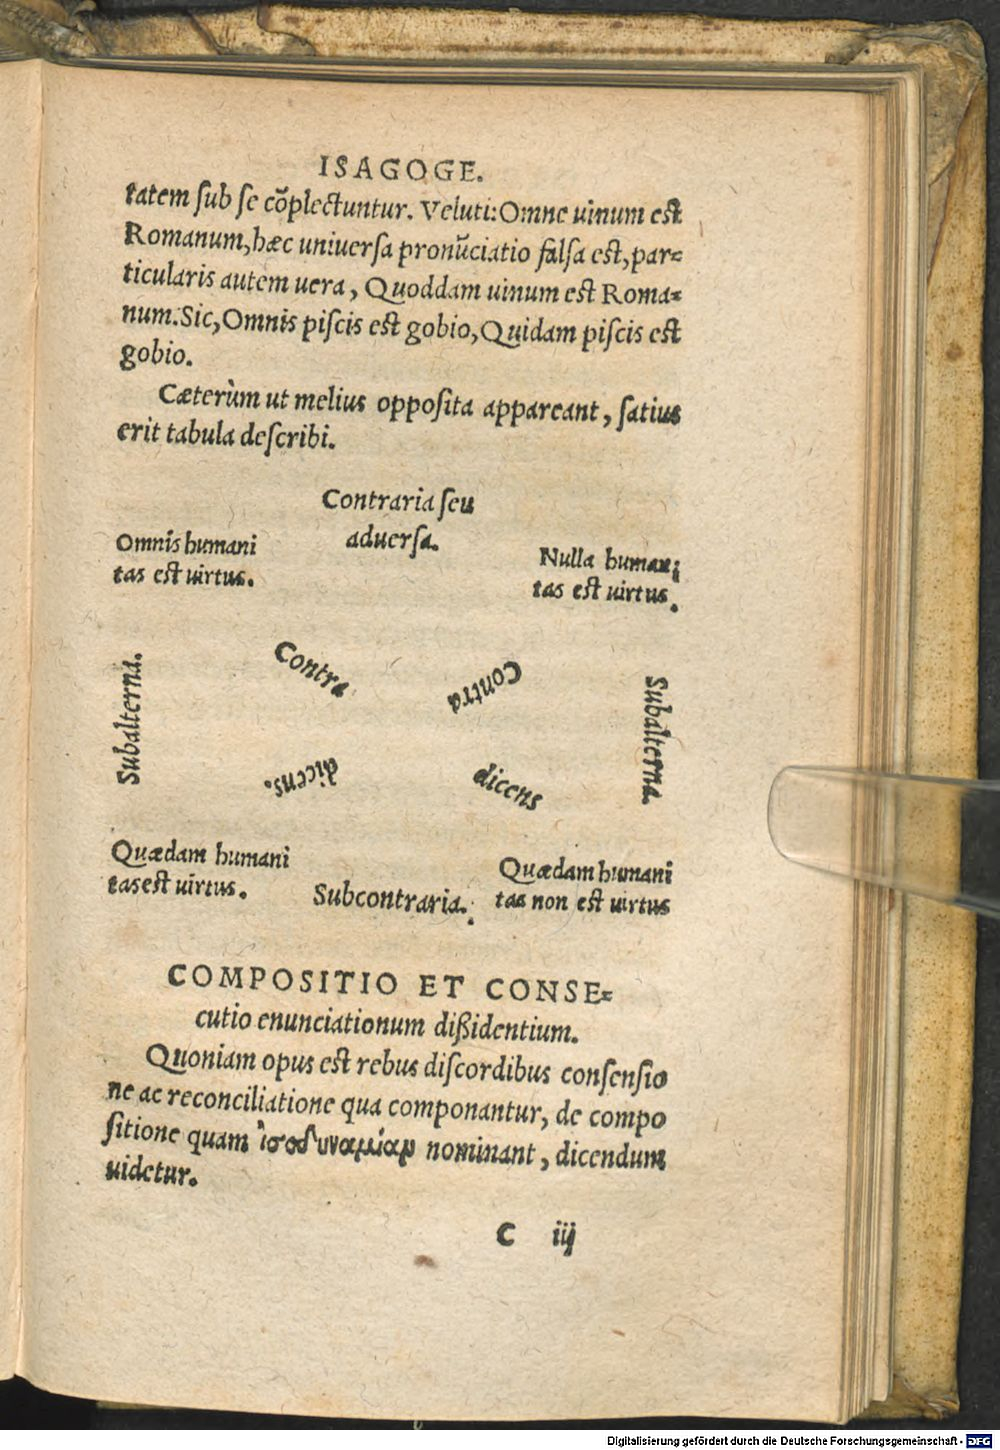 ISAGOGE.
tatem ſub ſe cõplectuntur. Veluti: Omne uinum est
Romanum, hæc uniuerſa pronũciatio falſa est, par=
ticularis autem uera, Quoddam uinum est Roma=
num. Sic, Omnis piſcis est gobio, Quidam piſcis est
gobio.
Cæterùm ut melius oppoſita appareant, ſatius
erit tabula deſcribi.
Contraria ſeu
aduerſa.
Omnis humani
tas est uirtus.
Nulla humani
tas est uirtus.
Contra
Contra
Subalterna.
Subalterna.
dicens.
dicens
Quædam humani
tas est uirtus.
Subcontraria.
Quædam humani
tas non est uirtus
COMPOSITIO ET CONSE=
cutio enunciationum dißidentium.
Quoniam opus est rebus diſcordibus conſenſio
ne ac reconciliatione qua componantur, de compo
ſitione quam ἰσοδυναμίαν nominant, dicendum
uidetur.
C iij
Digitalisierung gefördert durch die Deutsche Forschungsgemeinschaft - DFG